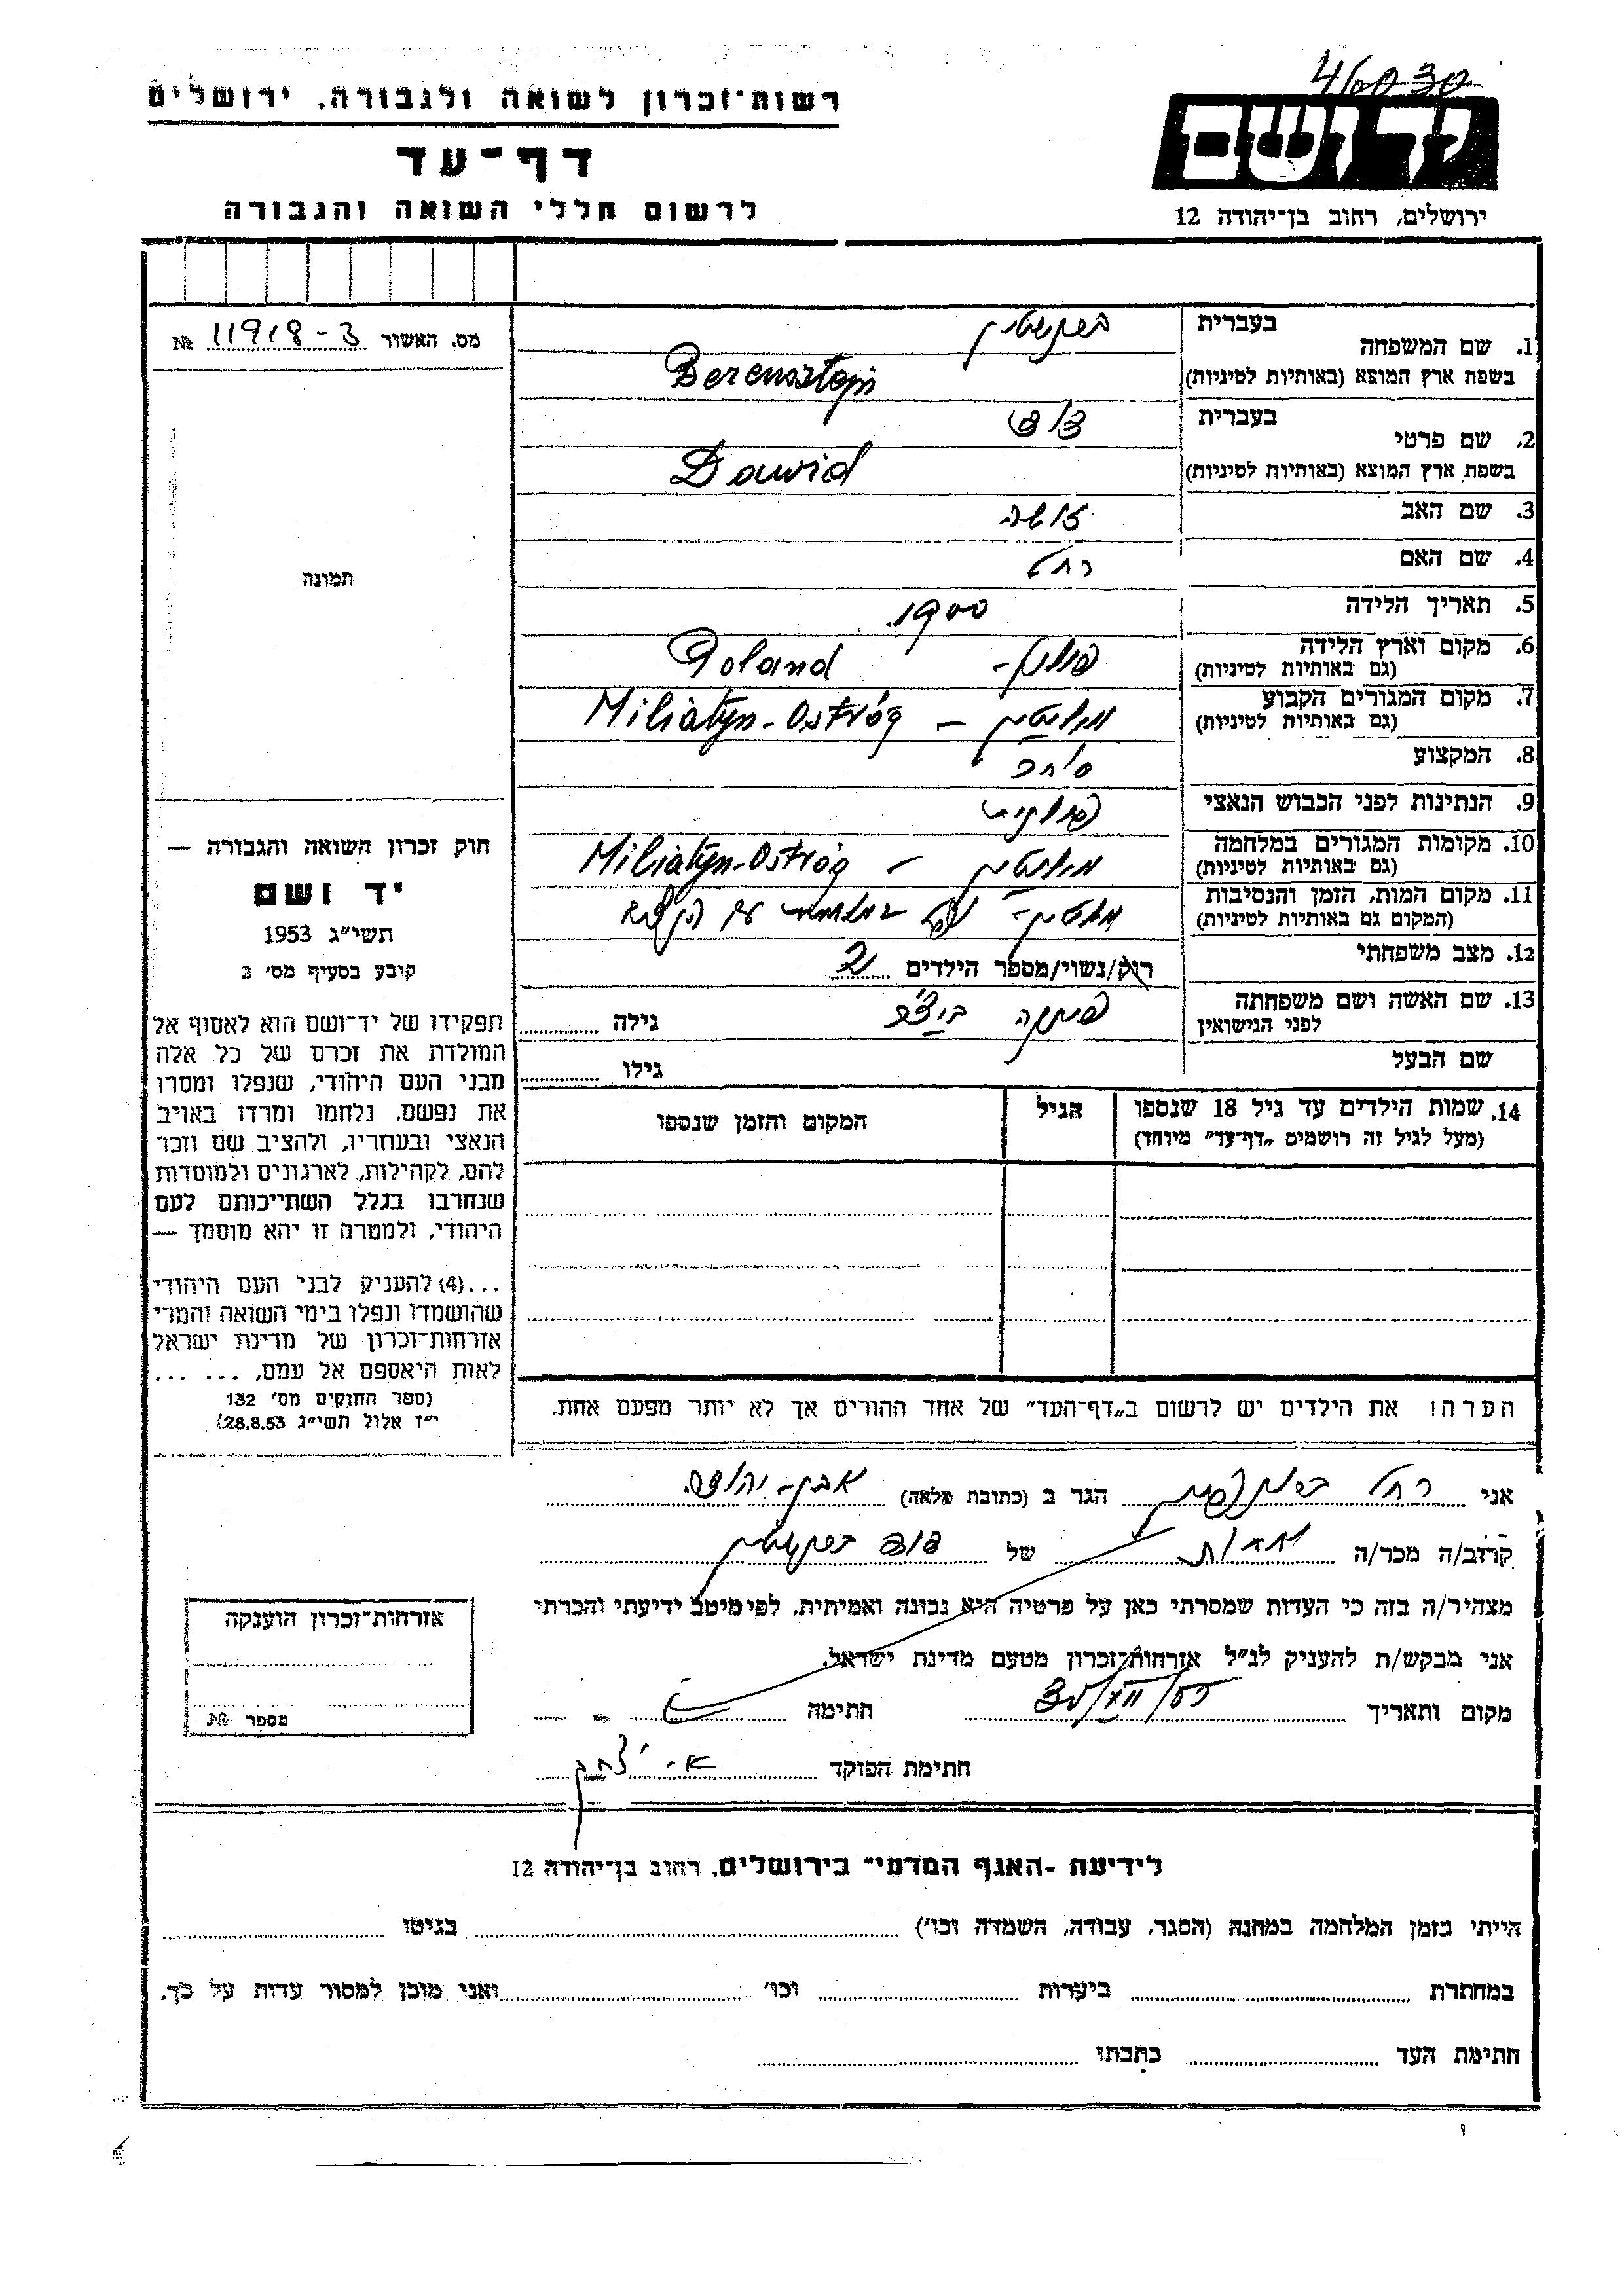 46030
רשות־זכרון לשואה ולגבורה, ירושלים
דף־עד
לרשום חללי השואה והגבורה
יד ושם
ירושלים, רחוב בן־יהודה 12
מס. האשור 11918-3 №
תמונה
1. שם המשפחה
בעברית ברנשטיין
בשפת ארץ המוצא (באותיות לטיניות) Berensztejn
2. שם פרטי
בעברית דוד
בשפת ארץ המוצא (באותיות לטיניות) Dawid
3. שם האב זושה
4. שם האם רחל
5. תאריך הלידה 1900
6. מקום וארץ הלידה פולין - Poland
(גם באותיות לטיניות)
7. מקום המגורים הקבוע מיליטין - Miliatyn-Ostróg
(גם באותיות לטיניות)
8. המקצוע סוחר
9. הנתינות לפני הכבוש הנאצי פולנית
10. מקומות המגורים במלחמה מיליטין - Miliatyn-Ostróg
(גם באותיות לטיניות)
11. מקום המות, הזמן והנסיבות
(המקום גם באותיות לטיניות)
12. מצב משפחתי רוק/נשוי/מספר הילדים 2
13. שם האשה ושם משפחתה
לפני הנישואין
גילה
שם הבעל
גילו
14. שמות הילדים עד גיל 18 שנספו
(מעל לגיל זה רושמים „דף־עד” מיוחד)
הגיל
המקום והזמן שנספו
הערה! את הילדים יש לרשום ב„דף־העד” של אחד ההורים אך לא יותר מפעם אחת.
חוק זכרון השואה והגבורה —
יד ושם
תשי״ג 1953
קובע בסעיף מס׳ 2
תפקידו של יד־ושם הוא לאסוף אל
המולדת את זכרם של כל אלה
מבני העם היהודי, שנפלו ומסרו
את נפשם, נלחמו ומרדו באויב
הנאצי ובעוזריו, ולהציב שם וזכר
להם, לקהילות, לארגונים ולמוסדות
שנחרבו בגלל השתייכותם לעם
היהודי, ולמטרה זו יהא מוסמך —
...(4) להעניק לבני העם היהודי
שהושמדו ונפלו בימי השואה והמרי
אזרחות־זכרון של מדינת ישראל
לאות היאספם אל עמם, ... ...
(ספר החוקים מס׳ 132
י״ז אלול תשי״ג 28.8.53)
אני רחל הגר ב (כתובת מלאה) אבן-יהודה
קרוב/ה מכר/ה אחות של דוד ברנשטיין
מצהיר/ה בזה כי העדות שמסרתי כאן על פרטיה היא נכונה ואמיתית, לפי מיטב ידיעתי והכרתי
אני מבקש/ת להעניק לנ״ל אזרחות־זכרון מטעם מדינת ישראל.
מקום ותאריך חתימה
חתימת הפוקד א. יצחק
אזרחות־זכרון הוענקה
מספר №
לידיעת -האגף המדעי־ בירושלים, רחוב בן־יהודה 12
הייתי בזמן המלחמה במחנה (הסגר, עבודה, השמדה וכו׳) בגיטו
במחתרת ביערות וכו׳ ואני מוכן למסור עדות על כך.
חתימת העד כתבתו